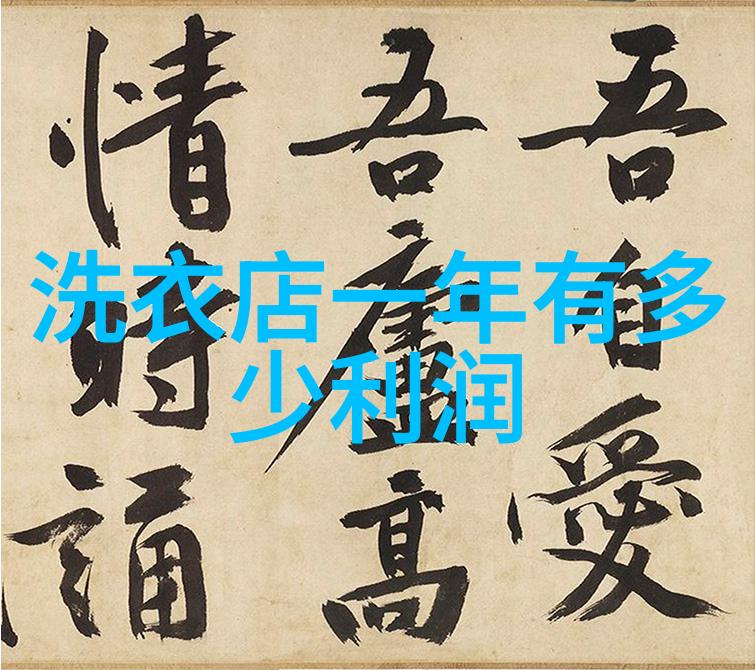 洗衣店一年有多
少利润
吾自愛
吾廬高
情時誦